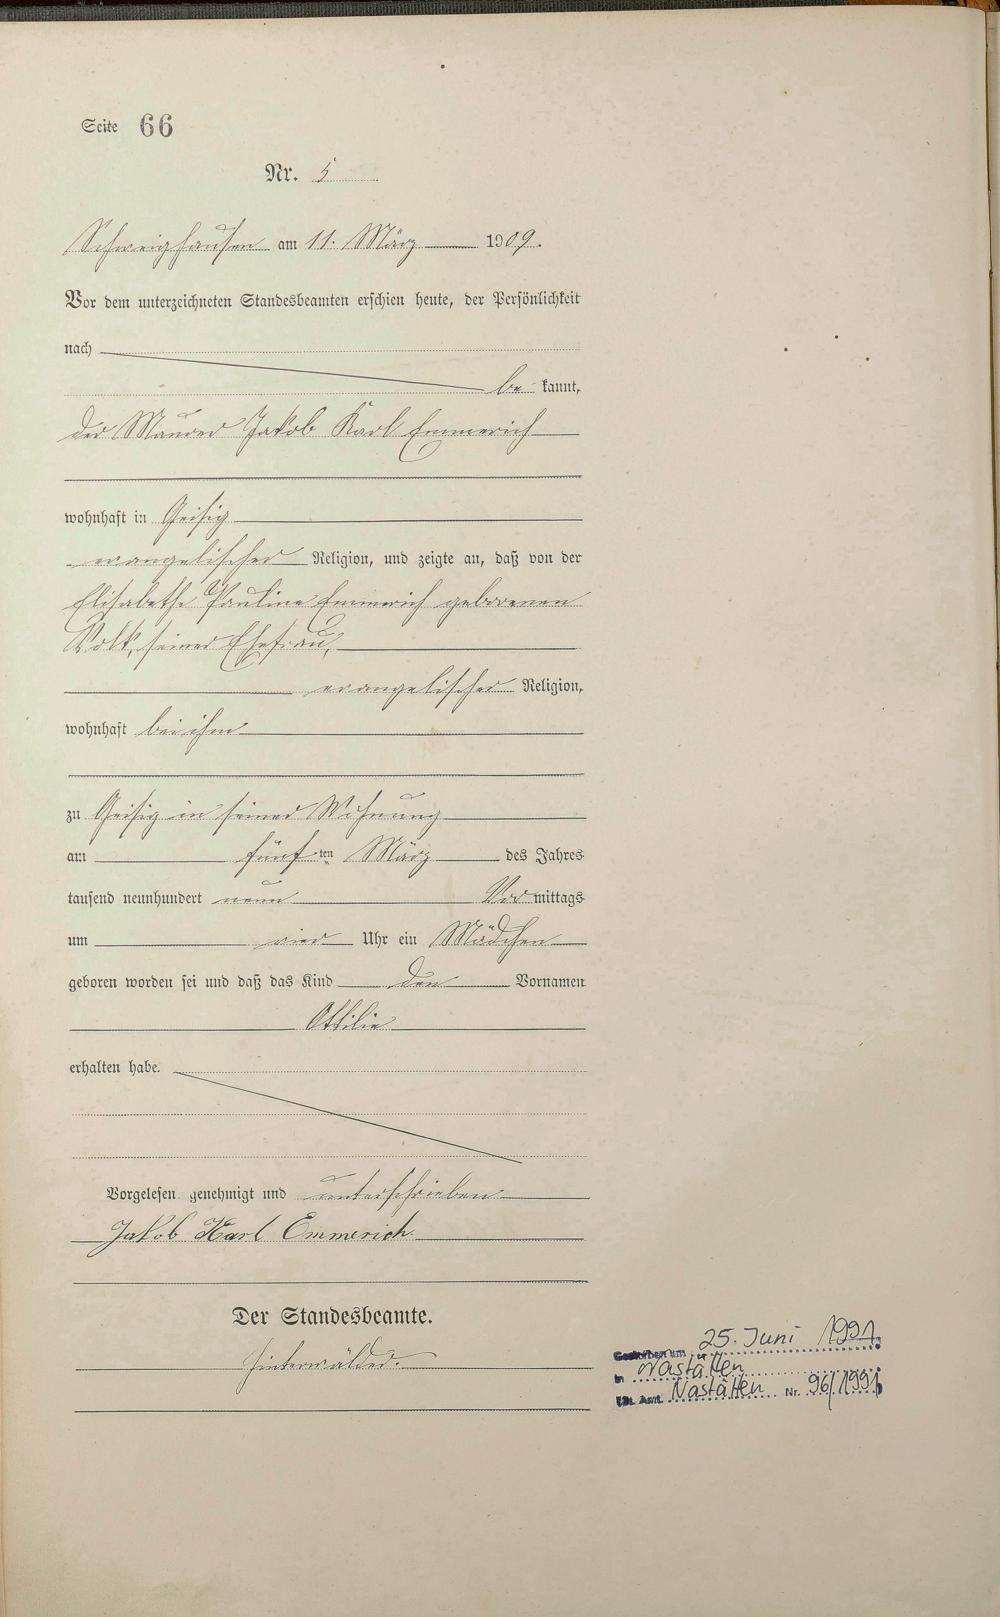 Seite 66
Nr. 5
Schweighausen am 11. März 1909.
Vor dem unterzeichneten Standesbeamten erschien heute, der Persönlichkeit
nach
be kannt,
der Maurer Jakob Karl Emmerich
wohnhaft in Geisig
evangelischer Religion, und zeigte an, daß von der
Elisabethe Pauline Emmerich geborenen
Volk, seiner Ehefrau,
evangelischer Religion,
wohnhaft bei ihm
zu Geisig in seiner Wohnung
am fünf ten März des Jahres
tausend neunhundert neun Vor mittags
um vier Uhr ein Mädchen
geboren worden sei und daß das Kind den Vornamen
Ottilie
erhalten habe.
Vorgelesen genehmigt und unterschrieben
Jakob Karl Emmerich
Der Standesbeamte.
Hinterwälder.
Gestorben am 25. Juni 1991
in Nastätten
St. Amt. Nastätten Nr. 96/1991